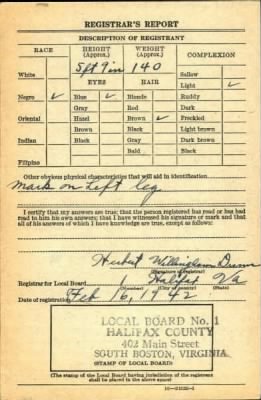 REGISTRAR'S REPORT
DESCRIPTION OF REGISTRANT
RACE HEIGHT (Approx.) WEIGHT (Approx.) COMPLEXION
5 ft 9 in 140
White Sallow
EYES HAIR Light ✓
Negro ✓ Blue ✓ Blonde Ruddy
Gray Red Dark
Oriental Hazel Brown ✓ Freckled
Brown Black Light brown
Indian Black Gray Dark brown
Bald Black
Filipino
Other obvious physical characteristics that will aid in identification
Mark on Left leg
I certify that my answers are true; that the person registered has read or has had
read to him his own answers; that I have witnessed his signature or mark and that
all of his answers of which I have knowledge are true, except as follows:
(Signature of registrar)
Registrar for Local Board Halifax Va
(Number) (City or county) (State)
Date of registration Feb 16, 1942
LOCAL BOARD No. 1
HALIFAX COUNTY
402 Main Street
SOUTH BOSTON, VIRGINIA
(STAMP OF LOCAL BOARD)
(The stamp of the Local Board having jurisdiction of the registrant
shall be placed in the above space)